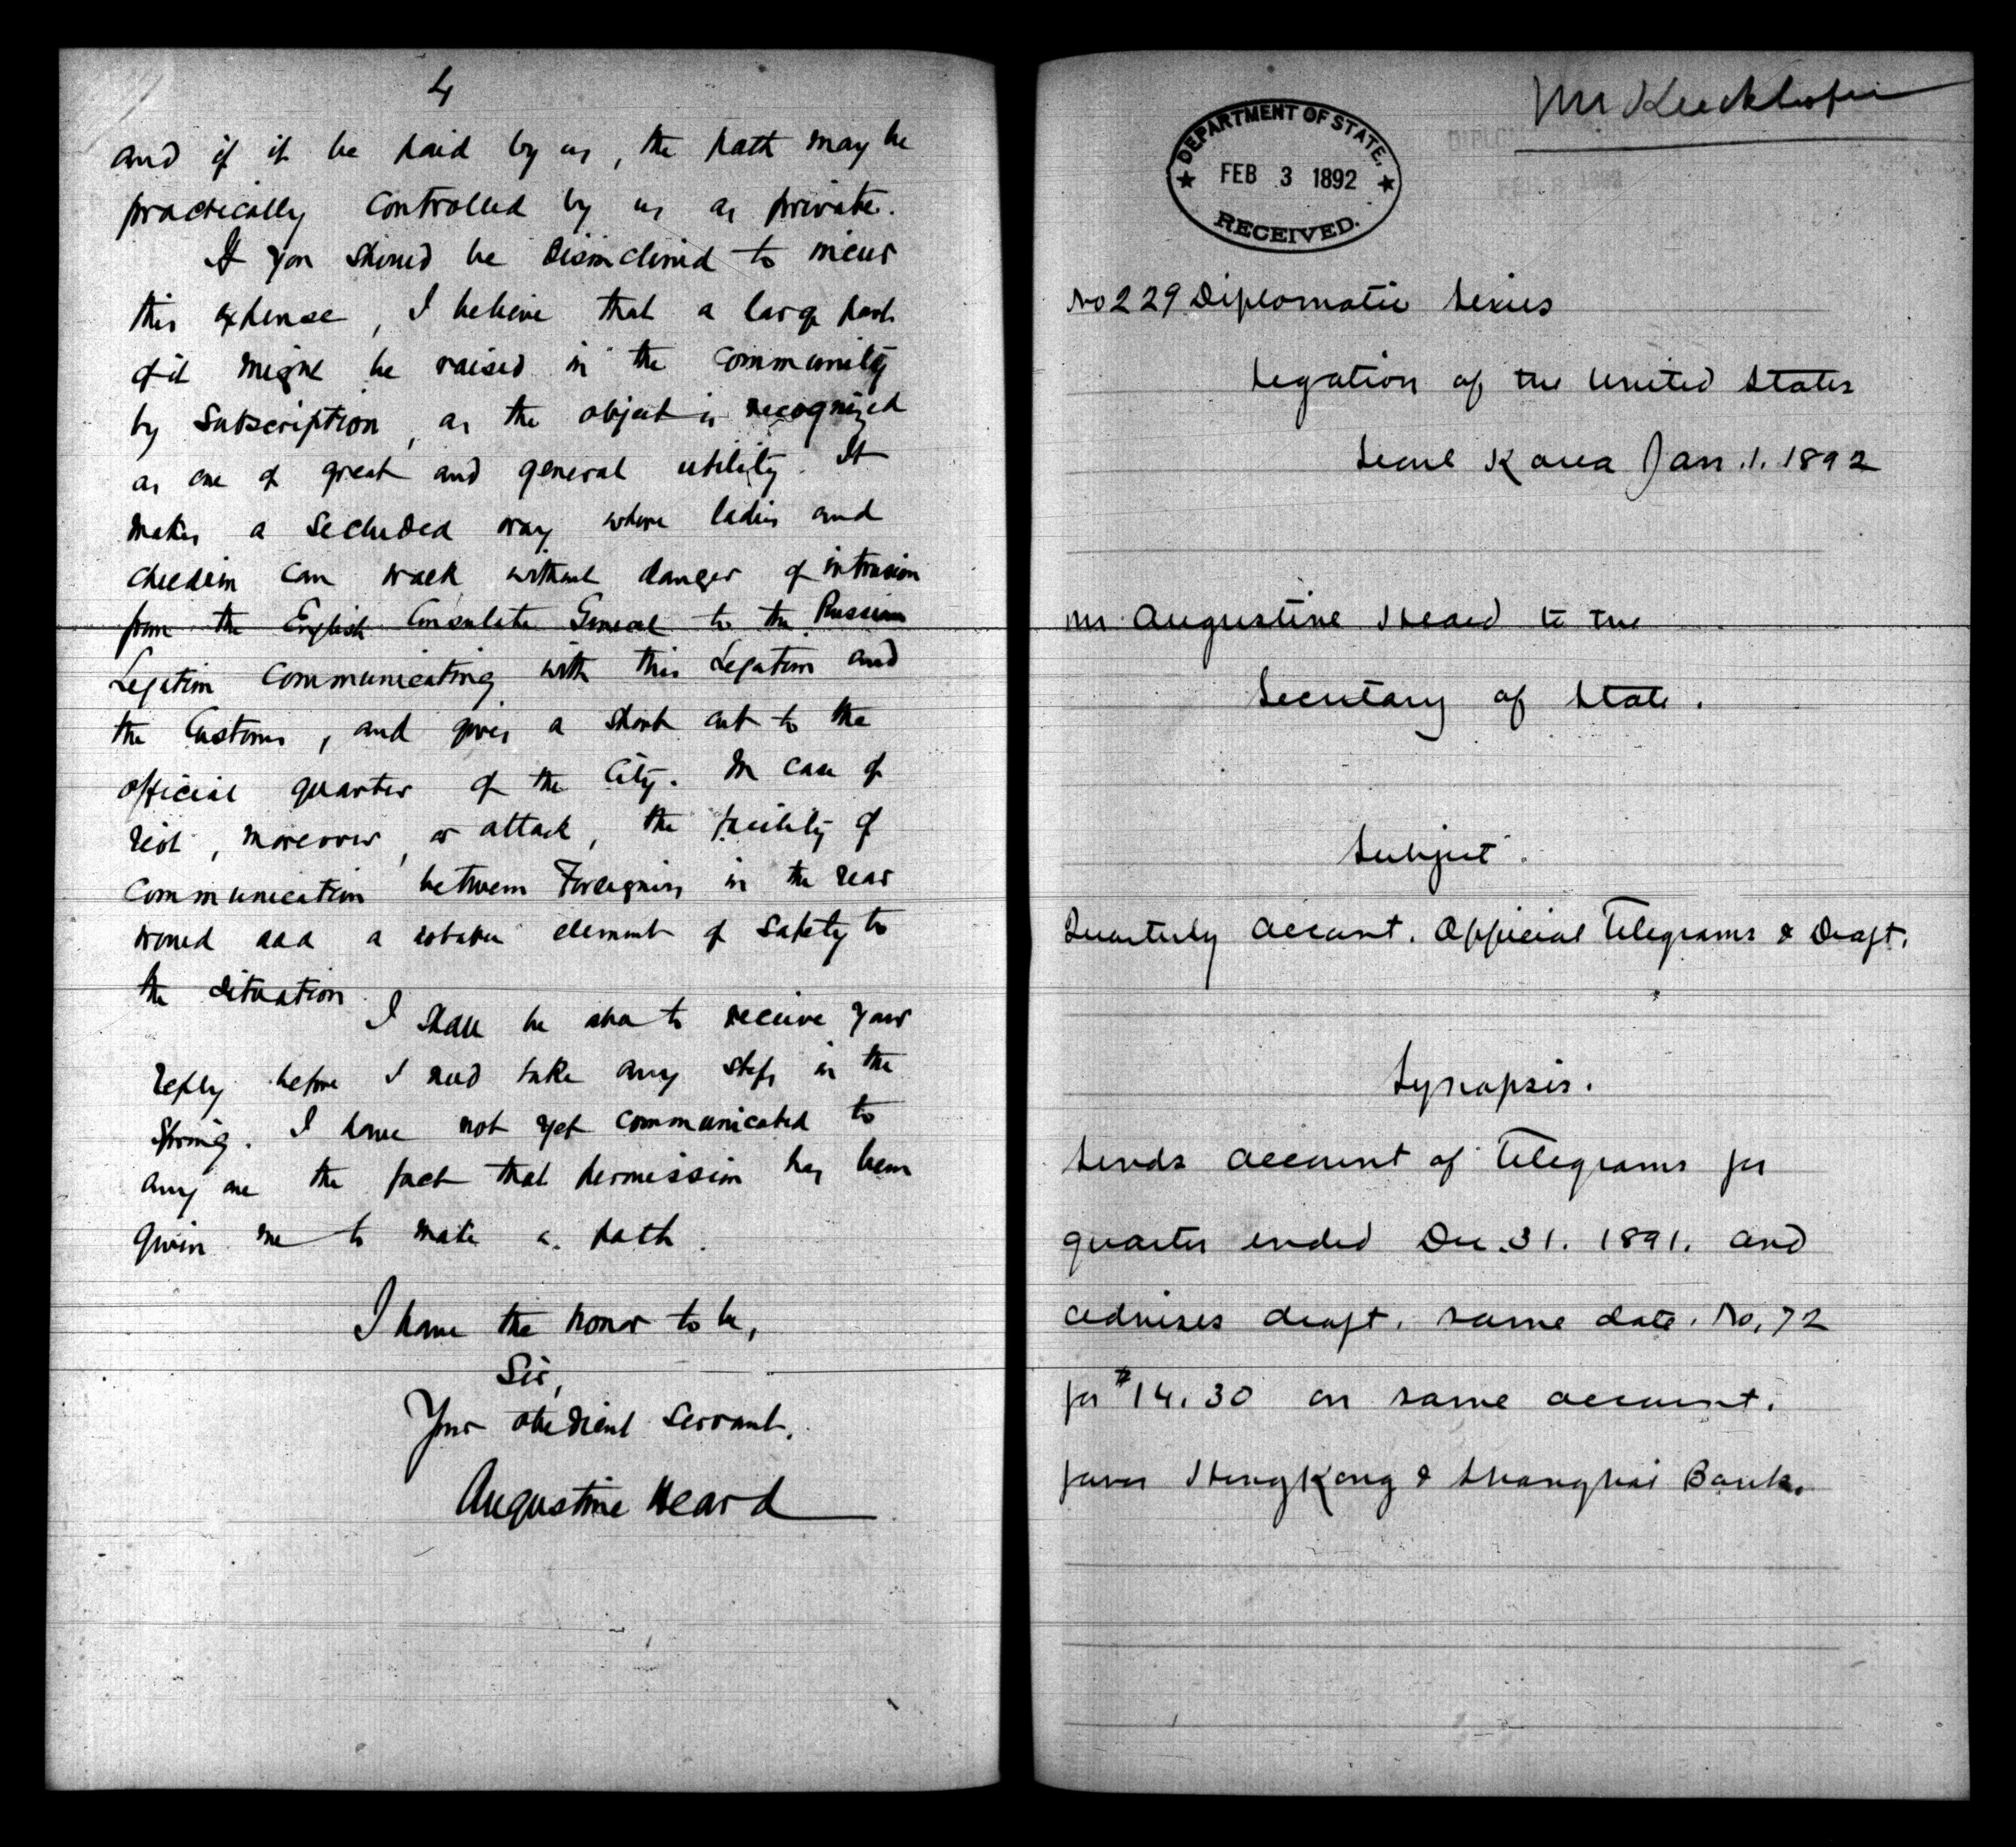 4
and if it be paid by us, the path may be
practically controlled by us as private.
If you should be disinclined to incur
this expense, I believe that a large part
of it might be raised in the community
by subscription, as the object is recognized
as one of great and general utility. It
makes a secluded way where ladies and
children can walk without danger of intrusion
from the English Consulate General to the Russian
Legation communicating with this Legation and
the Customs, and gives a short cut to the
official quarter of the City. In case of
riot, moreover, or attack, the facility of
communication between Foreigners in the rear
would add a notable element of safety to
the situation.
I shall be able to receive your
reply before I need take any steps in the
Spring. I have not yet communicated to
any one the fact that permission has been
given me to make a path.
I have the honor to be,
Sir,
Your obedient servant,
Augustine Heard
Mr
DEPARTMENT OF STATE,
FEB 3 1892
RECEIVED.
No 229 Diplomatic Series
Legation of the United States
Seoul Korea Jan. 1. 1892
Mr Augustine Heard to the
Secretary of State.
Subject.
Quarterly Account. Official Telegrams & Draft.
Synopsis.
Sends account of Telegrams for
quarter ended Dec. 31. 1891. and
advises draft. same date. No. 72
for $14.30 on same account.
favor HongKong & Shanghai Bank.